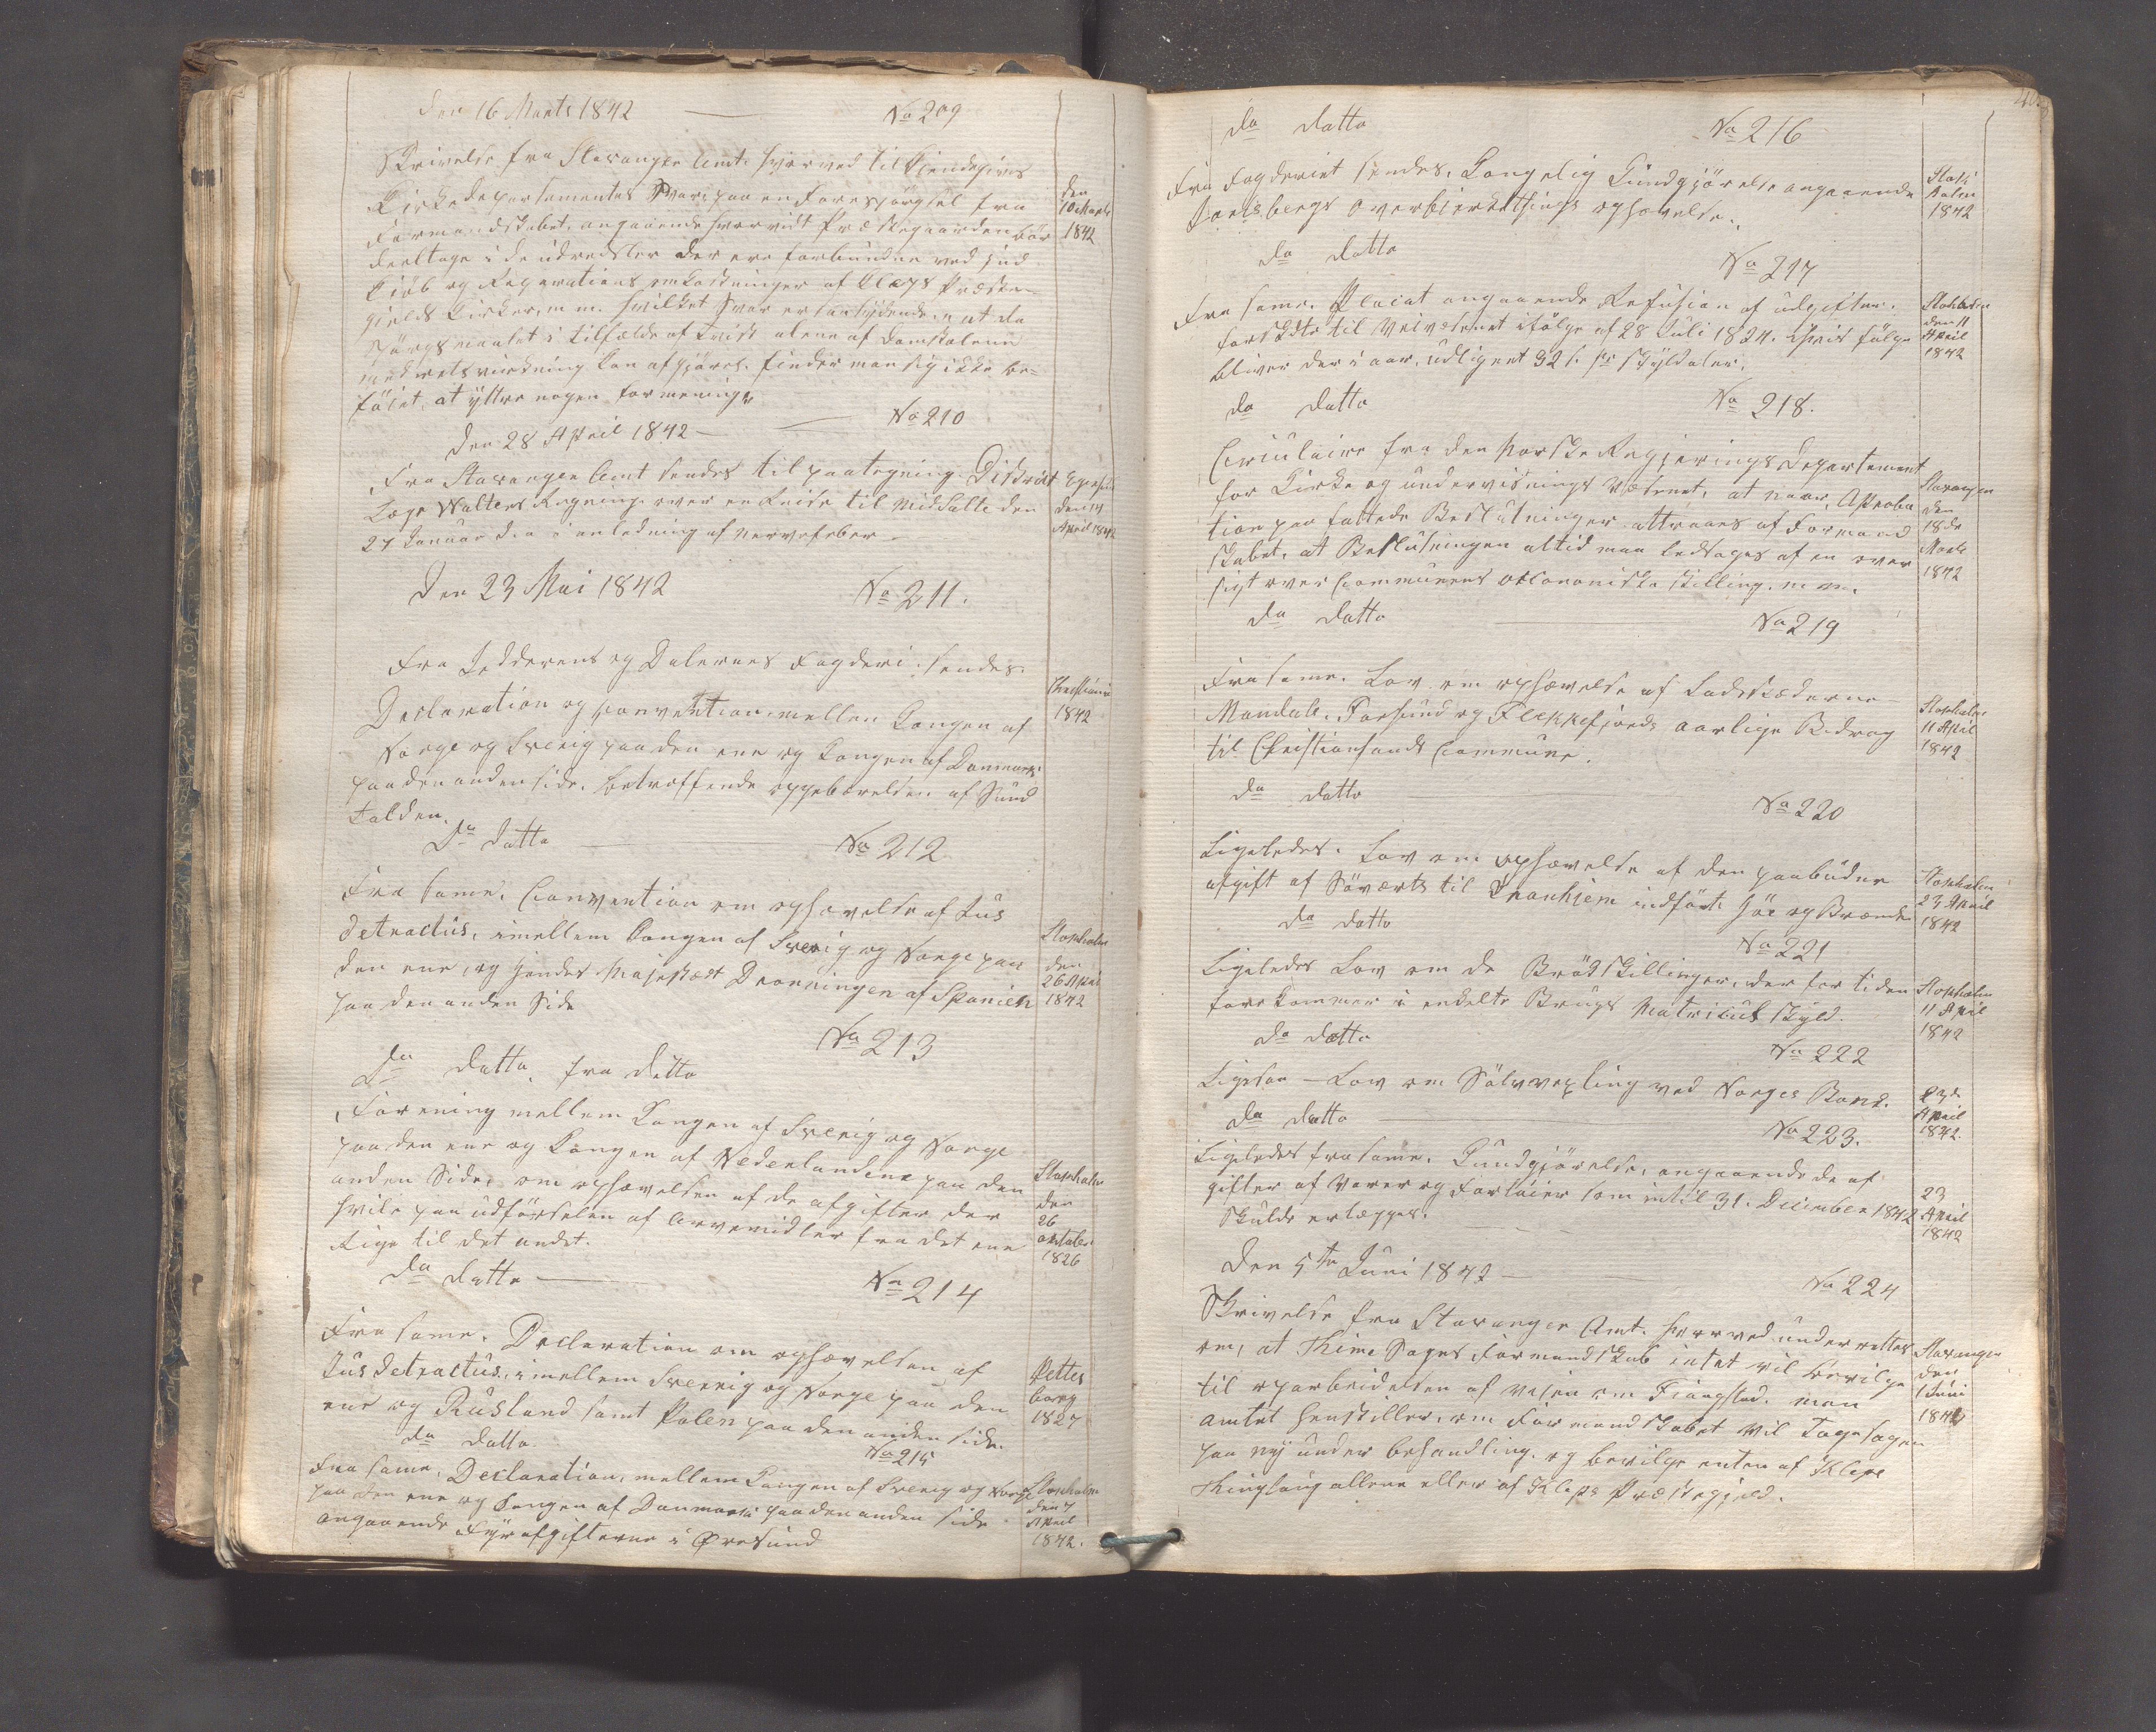 Den 16 Marts 1842 — No 209
Skrivelse fra Stavanger Amt. hvorved til Kjendegives
Kirkedepartementets Svar paa en Forespörgsel fra
Formandskabet, angaaende hvorvidt Præstegaarden bör
deeltage i de udredsler der ere forbundne ved ind
Kjöb og Reparations omkostninger af Kleps Præste-
gjelds Kirker, m m. hvilket Svar er saalydende: at da
Spörgsmaalet i tilfælde af Tvist alene af Domstolene
med retsvirkning kan afgjöres. finder man sig ikke be-
föiet, at yttre nogen formening.
den
10 Marts
1842
Den 28 April 1842 — No 210
Fra Stavanger Amt sendes til paategning District
Læge Walters Regning over en Reise til Midsatte den
27 Januar d. a i anledning af nervefeber —
Egersund
den 14
April 1842
Den 23 Mai 1842 No 211.
Fra Jedderens og Dalernes Fogderi sendes.
Declaration og Convention mellem Kongen af
Norge og Sverig paa den ene og Kongen af Danmark
paa den anden side, betreffende oppebörelsen af Sund
Tolden.
Christiania
1842
Do Datto No 212
Fra samme. Convention om ophævelse af Jus
detractus, imellem Kongen af Sverig og Norge paa
den ene, og Hendes Majestæt Dronningen af Spanien
paa den anden Side
Stokholm
den
26 April
1842
No 213
Do Datto fra ditto
Forening mellem Kongen af Sverig og Norge
paa den ene og Kongen af Nederlandene paa den
anden Side, om ophævelsen af de afgifter der
hvile paa udförselen af Arvemidler fra det ene
Rige til det andet.
Stokholm
den
26
October
1826
do datto — No 214
Fra samme. Declaration om ophævelsen af
Jus detractus, imellem Sverrig og Norge paa den
ene og Rusland samt Polen paa den anden side.
Petters
borg
1827
do datto. No 215
Fra samme. Declaration, mellem Kongen af Sverig og Norge
paa den ene og Kongen af Danmark paa den anden side
angaaende Fyrafgifterne i Öresund
Stokholm
den 7
April
1842.
do datto No 216
Fra Fogderiet sendes. Kongelig Kundgjörelse angaaende
Jarlsbergs Overbirkethings ophævelse.
Stok
holm
1842
do datto No 217
Fra samme. Placat angaaende Refusion af udgifter.
forskudte til Veivæsenet ifölge af 28 Juli 1824. hvis fölge
bliver der i aar, udlignet 32 s. pr Skylddaler.
Stokholm
den 11
April
1842
do datto No 218.
Circulaire fra den Norske Regjerings Departement
for Kirke og undervisnings Væsenet, at naar Aproba
tion paa fattede Beslutninger attraaes af Formand
skabet, at Beslutningen altid maa ledsages af en over
sigt over Communens oeconomiske stilling. m m.
Stavanger
den
18de
Marts
1842
do datto No 219
Fra samme. Lov om ophævelse af Ladestæderne
Mandals, Farsund og Flekkefjords aarlige Bidrag
til Christiansands Commune.
Stokholm
11 April
1842
do datto No 220
Ligeledes. Lov om ophævelse af den paabudne
afgift af Söværts til Tronhjem indfört Höe og Brænde
Stokholm
23 April
1842
do datto No 221
Ligeledes Lov om de Brödskillinger, der for tiden
forekommer i enkelte Brugs Matricul skyld.
Stokholm
11 April
1842
do datto No 222
Ligesaa — Lov om Sölvvexling ved Norges Bank.
23d
April
1842.
do datto No 223.
Ligeledes fra samme. Kundgjörelse, angaaende de af
gifter af Varer og Fartöier som indtil 31. December 1842
skulde erlægges.
23
April
1842
Den 5te Juni 1842 — No 224
Skrivelse fra Stavanger Amt. hvorved underrettes
om, at Thime Sogns Formandskab intet vil bevilge
til oparbeidelsen af Veien om Fiaagstad. men
Amtet henstiller, om Formandskabet vil Tage sagen
paa ny under behandling. og bevilge enten af Klepe
Thinglaug allene eller af Kleps Præstegjeld.
Stavanger
den
1 Juni
1842